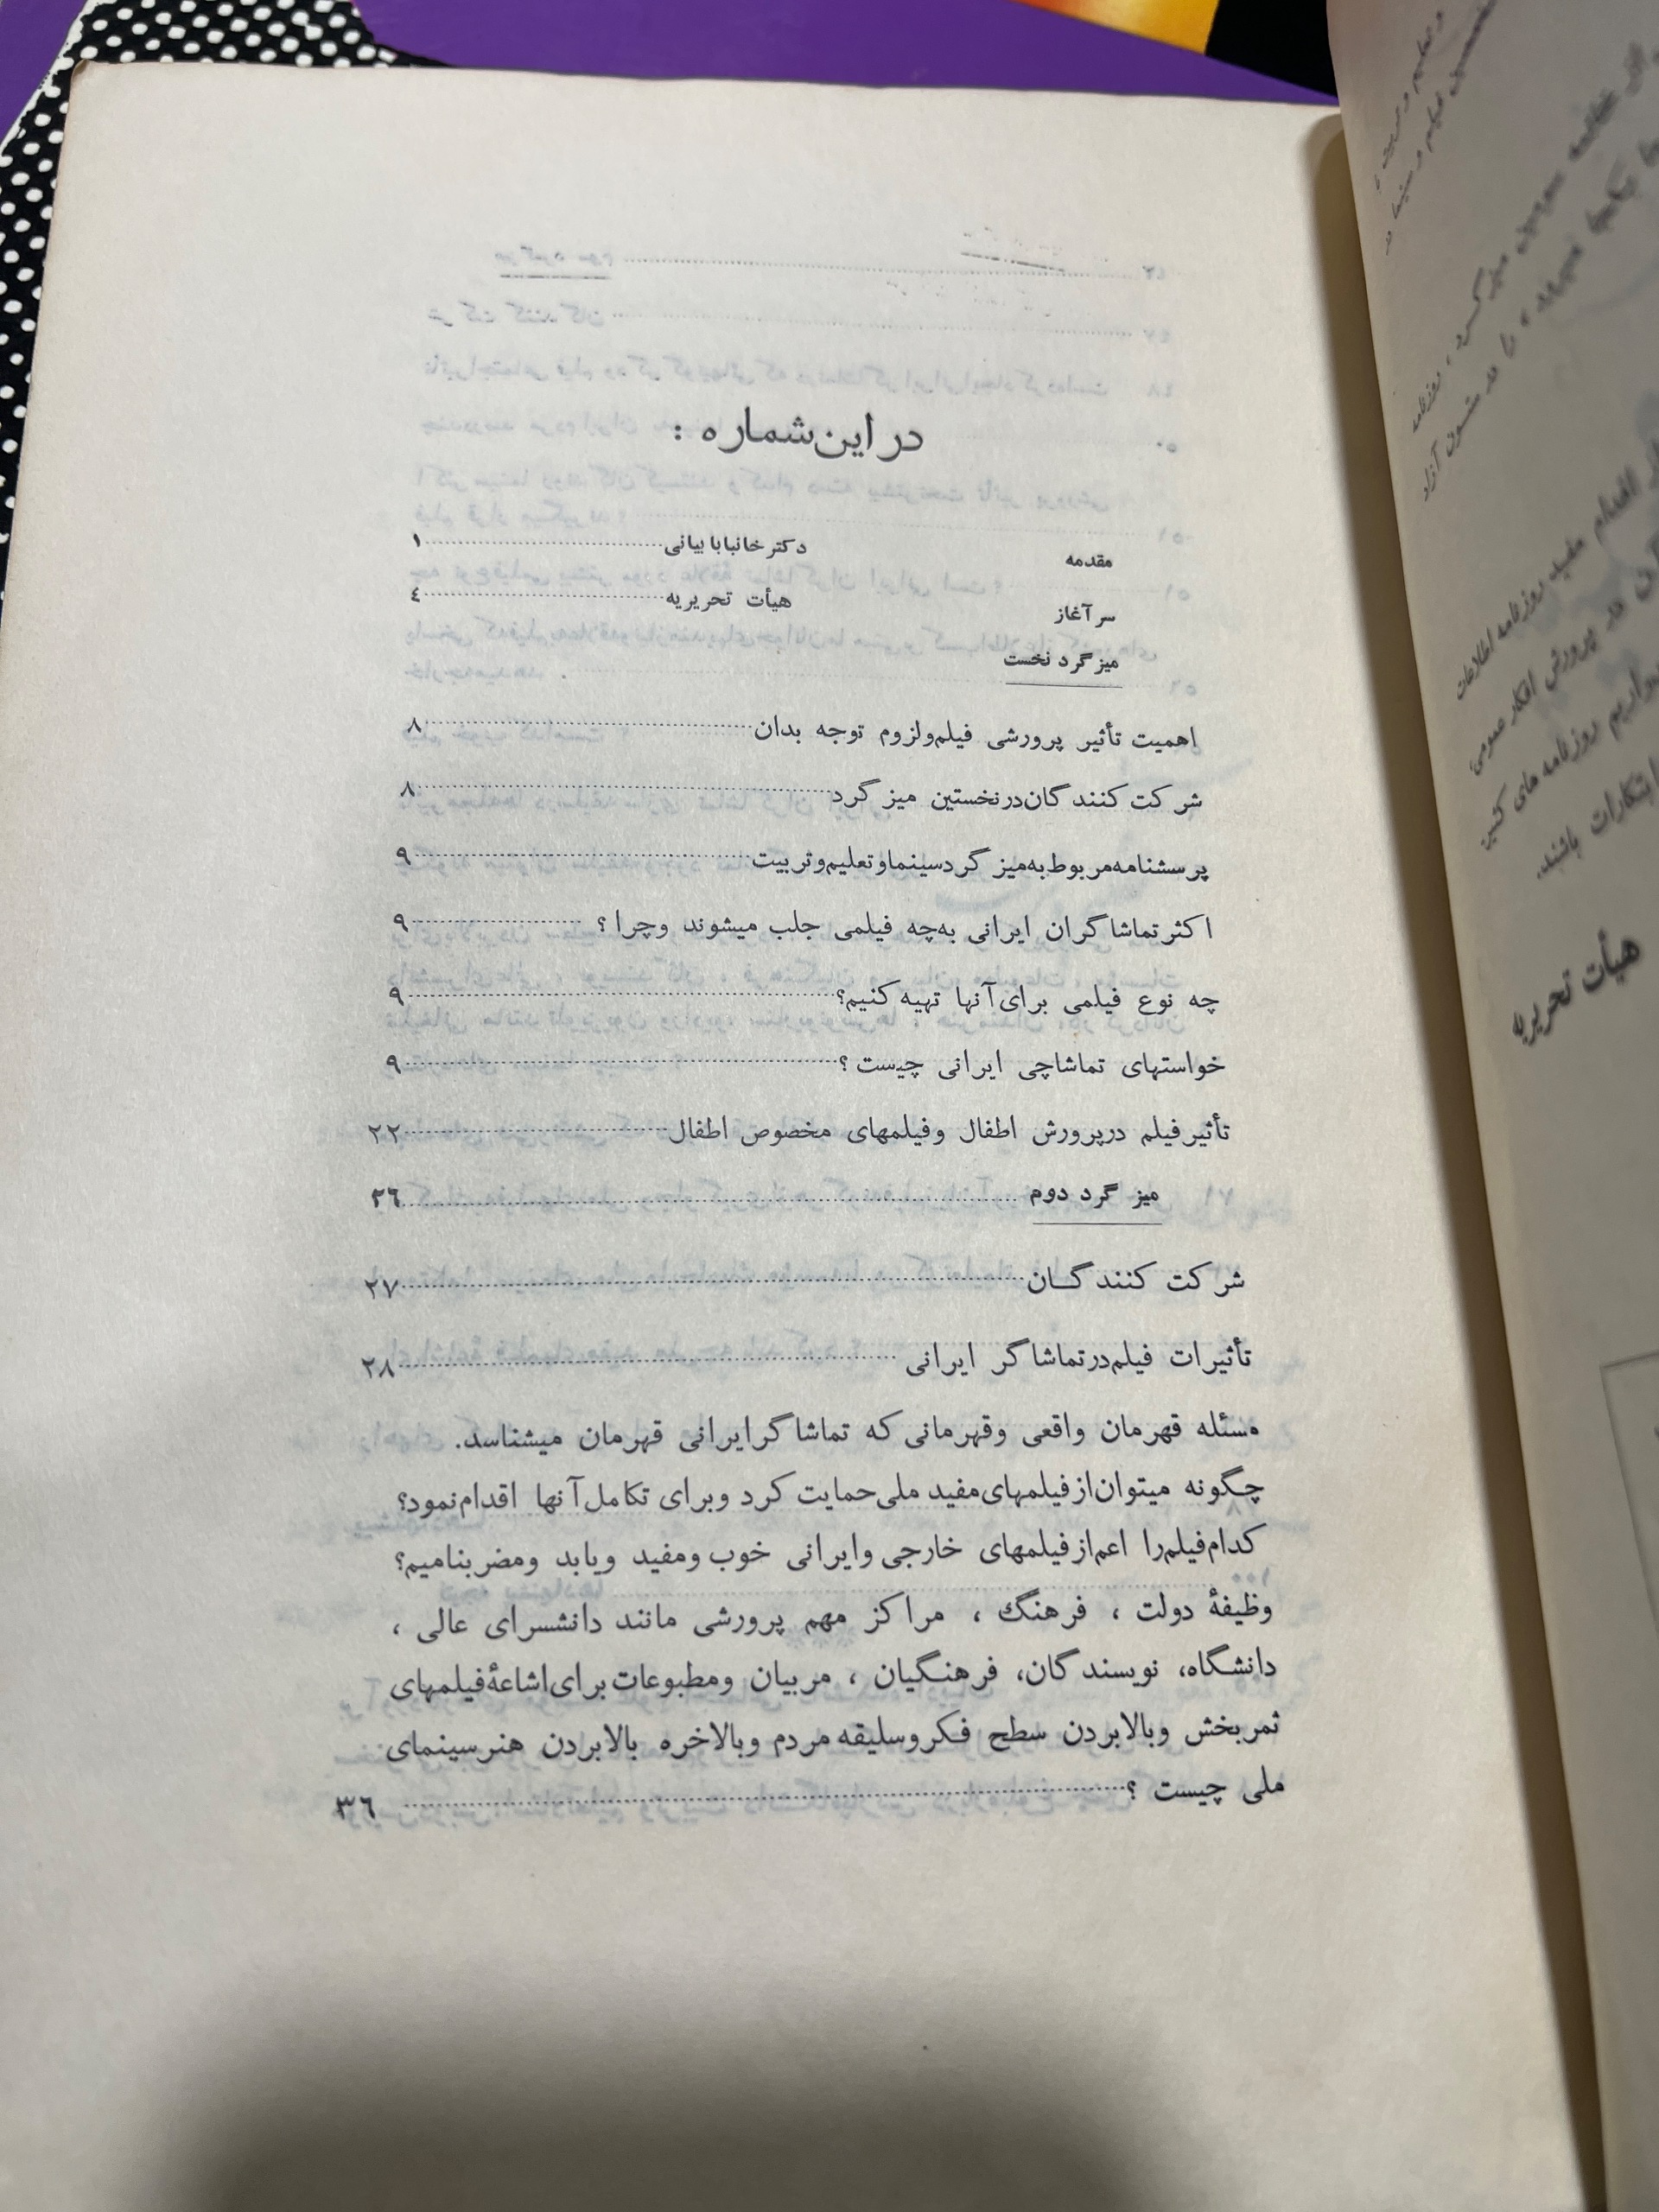 در این شماره :
مقدمه دکتر خانبابا بیانی ۱
سر آغاز هیأت تحریریه ٤
میز گرد نخست
اهمیت تأثیر پرورشی فیلم‌ولزوم توجه بدان ۸
شر کت کنند گان‌درنخستین میز گرد ۸
پرسشنامه‌مربوط‌به‌میز گردسینماوتعلیم‌وتربیت ۹
اکثرتماشاگران ایرانی به‌چه فیلمی جلب میشوند وچرا ؟ ۹
چه نوع فیلمی برای‌آنها تهیه‌کنیم؟ ۹
خواستهای تماشاچی ایرانی چیست ؟ ۹
تأثیرفیلم درپرورش اطفال وفیلمهای مخصوص اطفال ۲۲
میز گرد دوم ۲٦
شر کت کنند گــان ۲۷
تأثیرات فیلم‌درتماشاگر ایرانی ۲۸
مسئله قهرمان واقعی وقهرمانی که تماشاگرایرانی قهرمان میشناسد.
چگونه میتوان‌ازفیلمهای‌مفید ملی‌حمایت کرد وبرای تکامل‌آنها اقدام‌نمود؟
کدام‌فیلم‌را اعم‌ازفیلمهای خارجی‌وایرانی خوب ومفید ویابد ومضربنامیم؟
وظیفهٔ دولت ، فرهنگ ، مراکز مهم پرورشی مانند دانشسرای عالی ،
دانشگاه، نویسندگان، فرهنگیان ، مربیان ومطبوعات‌برای‌اشاعهٔ‌فیلمهای
ثمربخش وبالابردن سطح فکروسلیقه مردم وبالاخره بالابردن هنرسینمای
ملی چیست ؟ ۳٦
اقدام مفید روزنامه اطلاعات
در پرورش افکار عمومی،
روزنامه های کثیر
ابتکارات باشند.
هیأت تحریریه